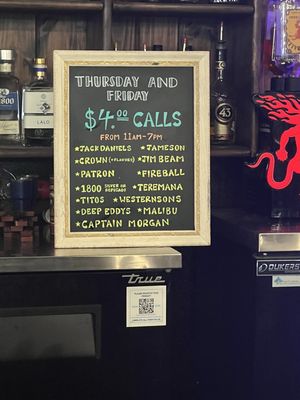 THURSDAY AND
FRIDAY
$4.00 CALLS
FROM 11AM-7PM
★JACK DANIELS ★JAMESON
★CROWN (+FLAVORS) ★JIM BEAM
★PATRON ★FIREBALL
★1800 SILVER OR REPOSADO ★TEREMANA
★TITOS ★WESTERNSONS
★DEEP EDDYS ★MALIBU
★CAPTAIN MORGAN
1800
LALO
43
true
DUKERS